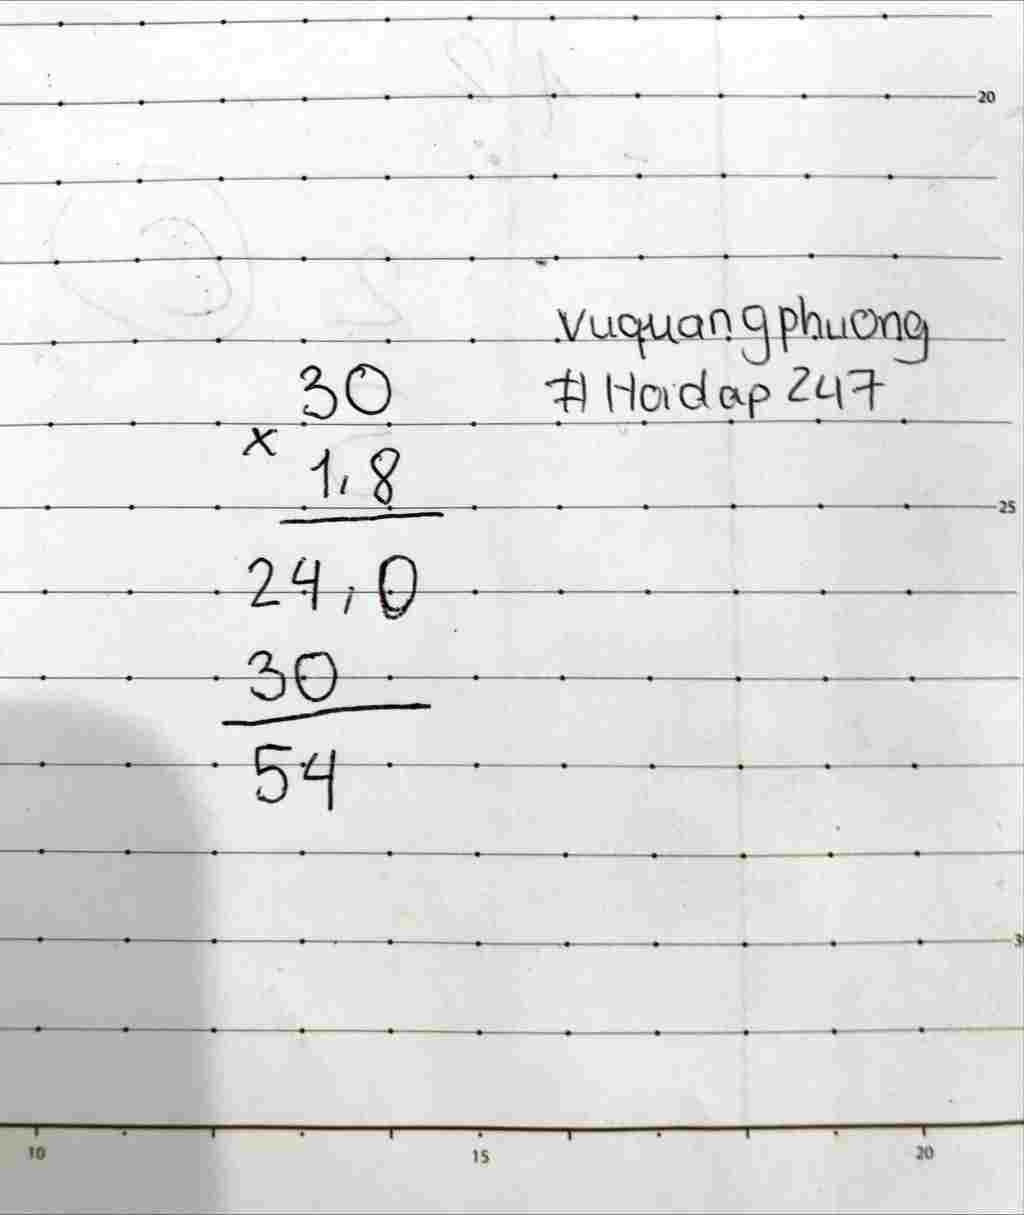 20
vuquangphuong
30
# Hoidap 247
x
1,8
25
24,0
30
54
10
15
20